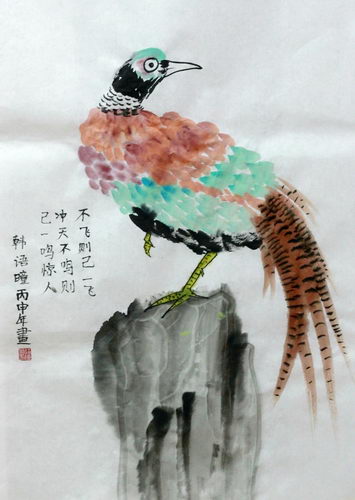 不飞则已一飞
冲天不鸣则
已一鸣惊人
韩语瞳丙申年畫